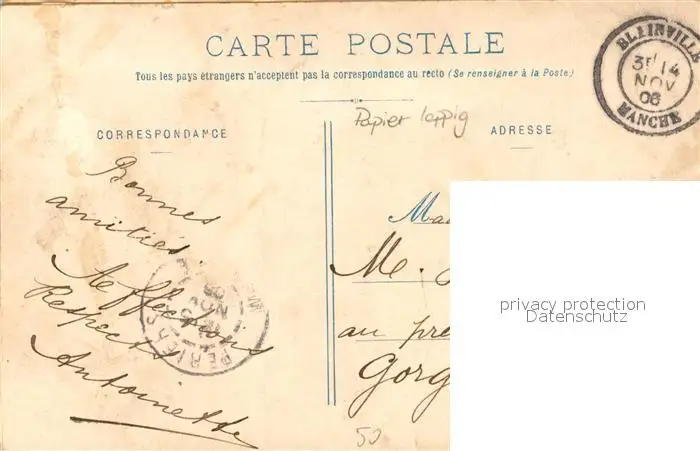 CARTE POSTALE
Tous les pays étrangers n'acceptent pas la correspondance au recto (Se renseigner à la Poste)
BLAINVILLE
3E 14
NOV
06
MANCHE
Papier lappig
CORRESPONDANCE
ADRESSE
Bonnes
amitiés.
Affections
Respects
Antoinette
PERIERS
NOV
Ma
Me.
au pre
Gorg
50
privacy protection
Datenschutz